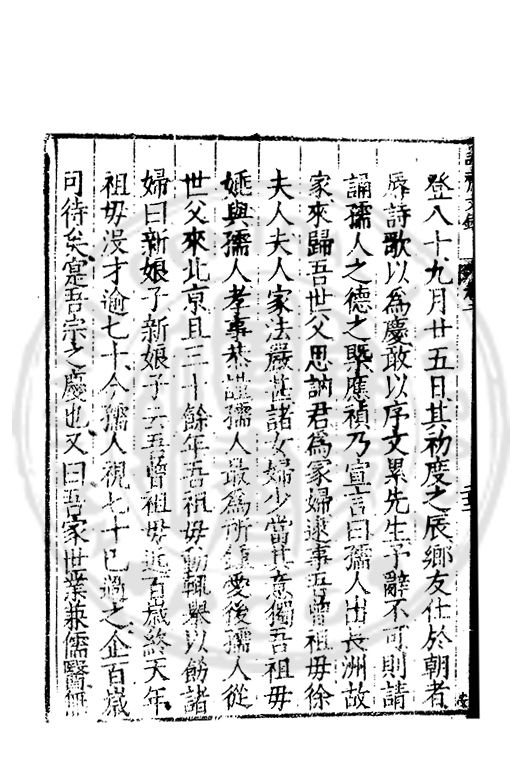 登八十九月廿五日其初度之辰鄉友仕於朝者
辱詩歌以爲慶敢以序文累先生予辭不可則請
誦孺人之德之槩應禎乃宣言曰孺人出長洲故
家來歸吾世父思訥君爲冢婦逮事吾曾祖母徐
夫人夫人家法嚴甚諸女婦少當其意獨吾祖母
姚與孺人孝事恭謹孺人最爲所鍾愛後孺人從
世父來北京且三十餘年吾祖母動輒舉以飭諸
婦曰新娘子新娘子云吾曾祖母近百歲終天年
祖母没才逾七十今孺人視七十已過之企百歲
可待矣寔吾宗之慶也又曰吾家世業兼儒醫無